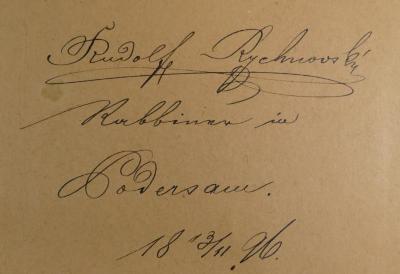 Rudolf Rychnovský
Rabbiner in
Podersam.
18 13/11 96.